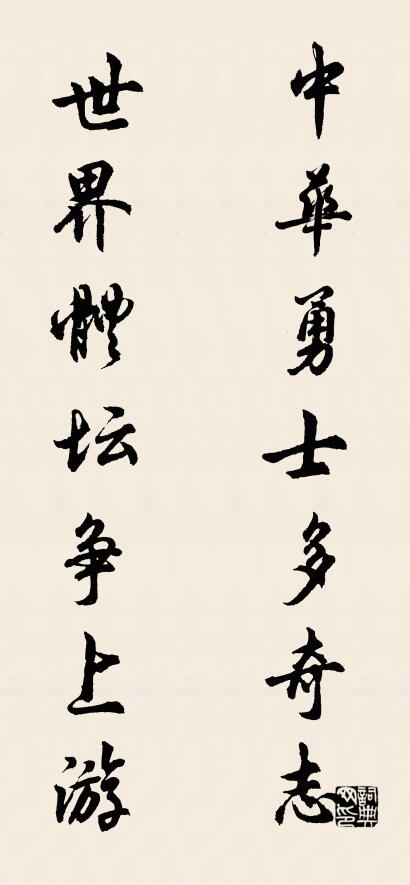 中華勇士多奇志
世界體坛争上游